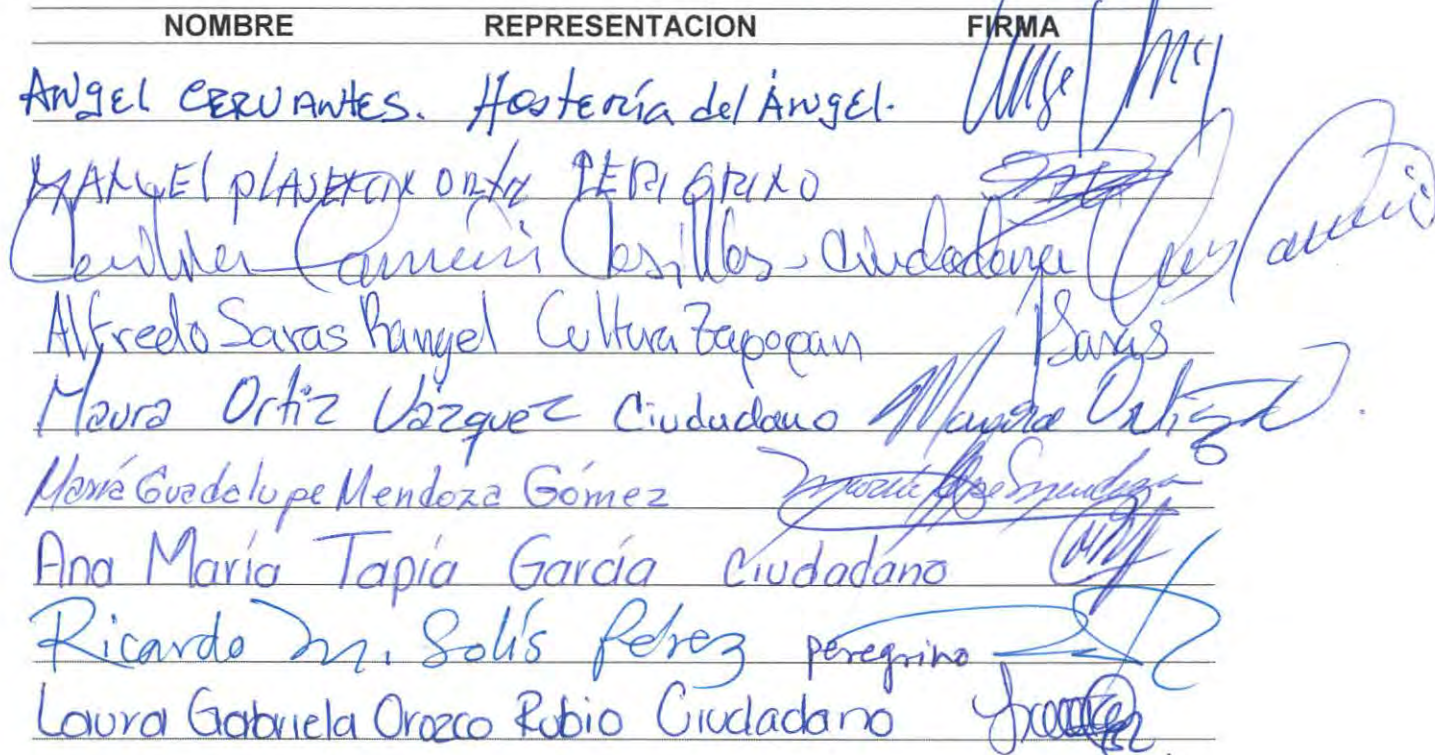 NOMBRE REPRESENTACION FIRMA
ANgEL CERVANTES. Hostería del Ángel.
MANUEL PLASENCIA ORTIZ PERIGRINO
Casillas - Ciudadana
Alfredo Saras Rangel Cultura Zapopan Saras
Maura Ortiz Vázquez Ciududano Maura Ortiz
María Guadelupe Mendoza Gómez
Ana María Tapia García Ciudadano
Ricardo M. Solís Pérez peregrino
Laura Gabriela Orozco Rubio Ciudadano